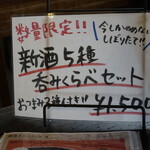 数量限定!!
今しかのめない
しぼりたて!!
新酒5種
呑みくらべセット
おつまみ3種付き!!
¥1,500